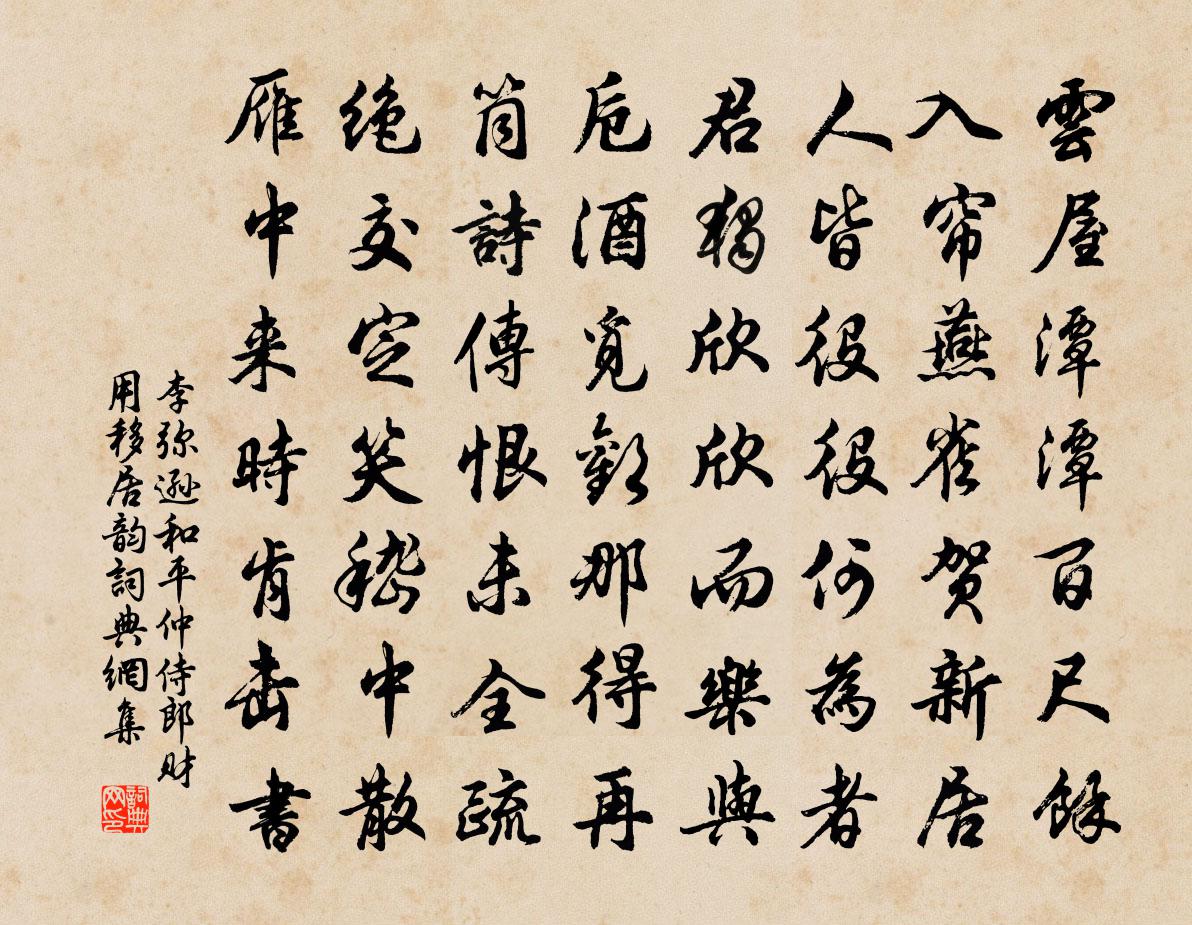 雲屋潭潭百尺餘
入帘燕雀贺新居
人皆役役何為者
君獨欣欣而樂與
卮酒覓歡那得再
筒詩傳恨未全疏
绝交定笑嵇中散
雁中来時肯書
李弥逊和平仲侍郎财
用移居韵詞典網集
詞典
网印